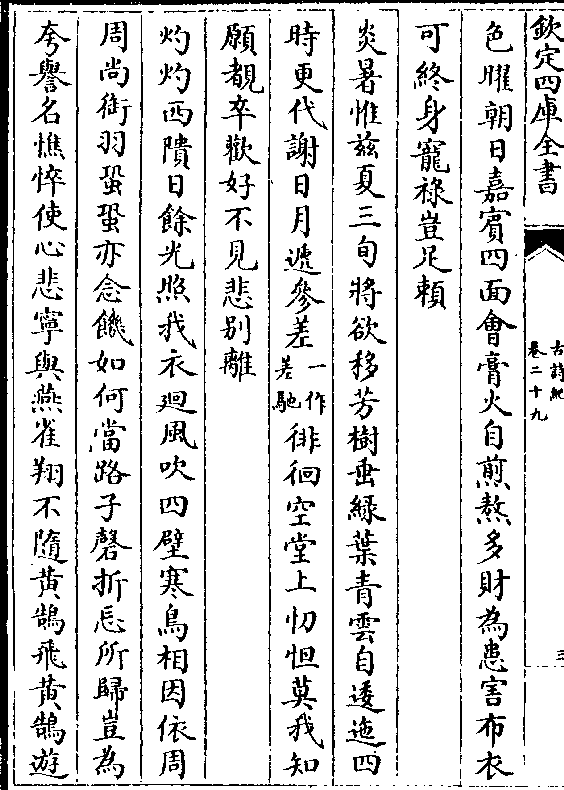 欽定四庫全書
古詩紀
卷二十九
三
色曜朝日嘉賓四面會膏火自煎熬多財為患害布衣
可終身寵祿豈足賴
炎暑惟兹夏三旬將欲移芳樹垂綠葉青雲自逶迤四
時更代謝日月遞參差一作差馳徘徊空堂上忉怛莫我知
願覩卒歡好不見悲别離
灼灼西隤日餘光照我衣迴風吹四壁寒鳥相因依周
周尚銜羽蛩蛩亦念饑如何當路子磬折忘所歸豈為
夸譽名憔悴使心悲寧與燕雀翔不隨黄鵠飛黄鵠遊